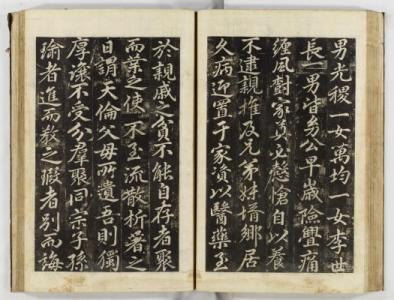 男光稷一女萬均一女李世
長一男皆幼公早歲險舋痛
纏風必慼愴自以養
不逮親推及兄弟姊壻鄉居
久病迎置于家資以醫藥至
於親戚之貧不能自存者聚
而業之使不至流散析著之
日謂天倫父母所遺吾則獨
厚讓不受分羣聚同宗子孫
瑜者進而教之瑕者別而誨